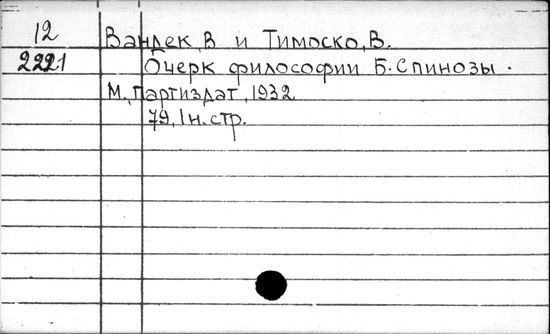 12
2221
Вандек, В и Тимоско, В.
Очерк философии Б. Спинозы.
М, Партиздат, 1932
79, 1 н. стр.